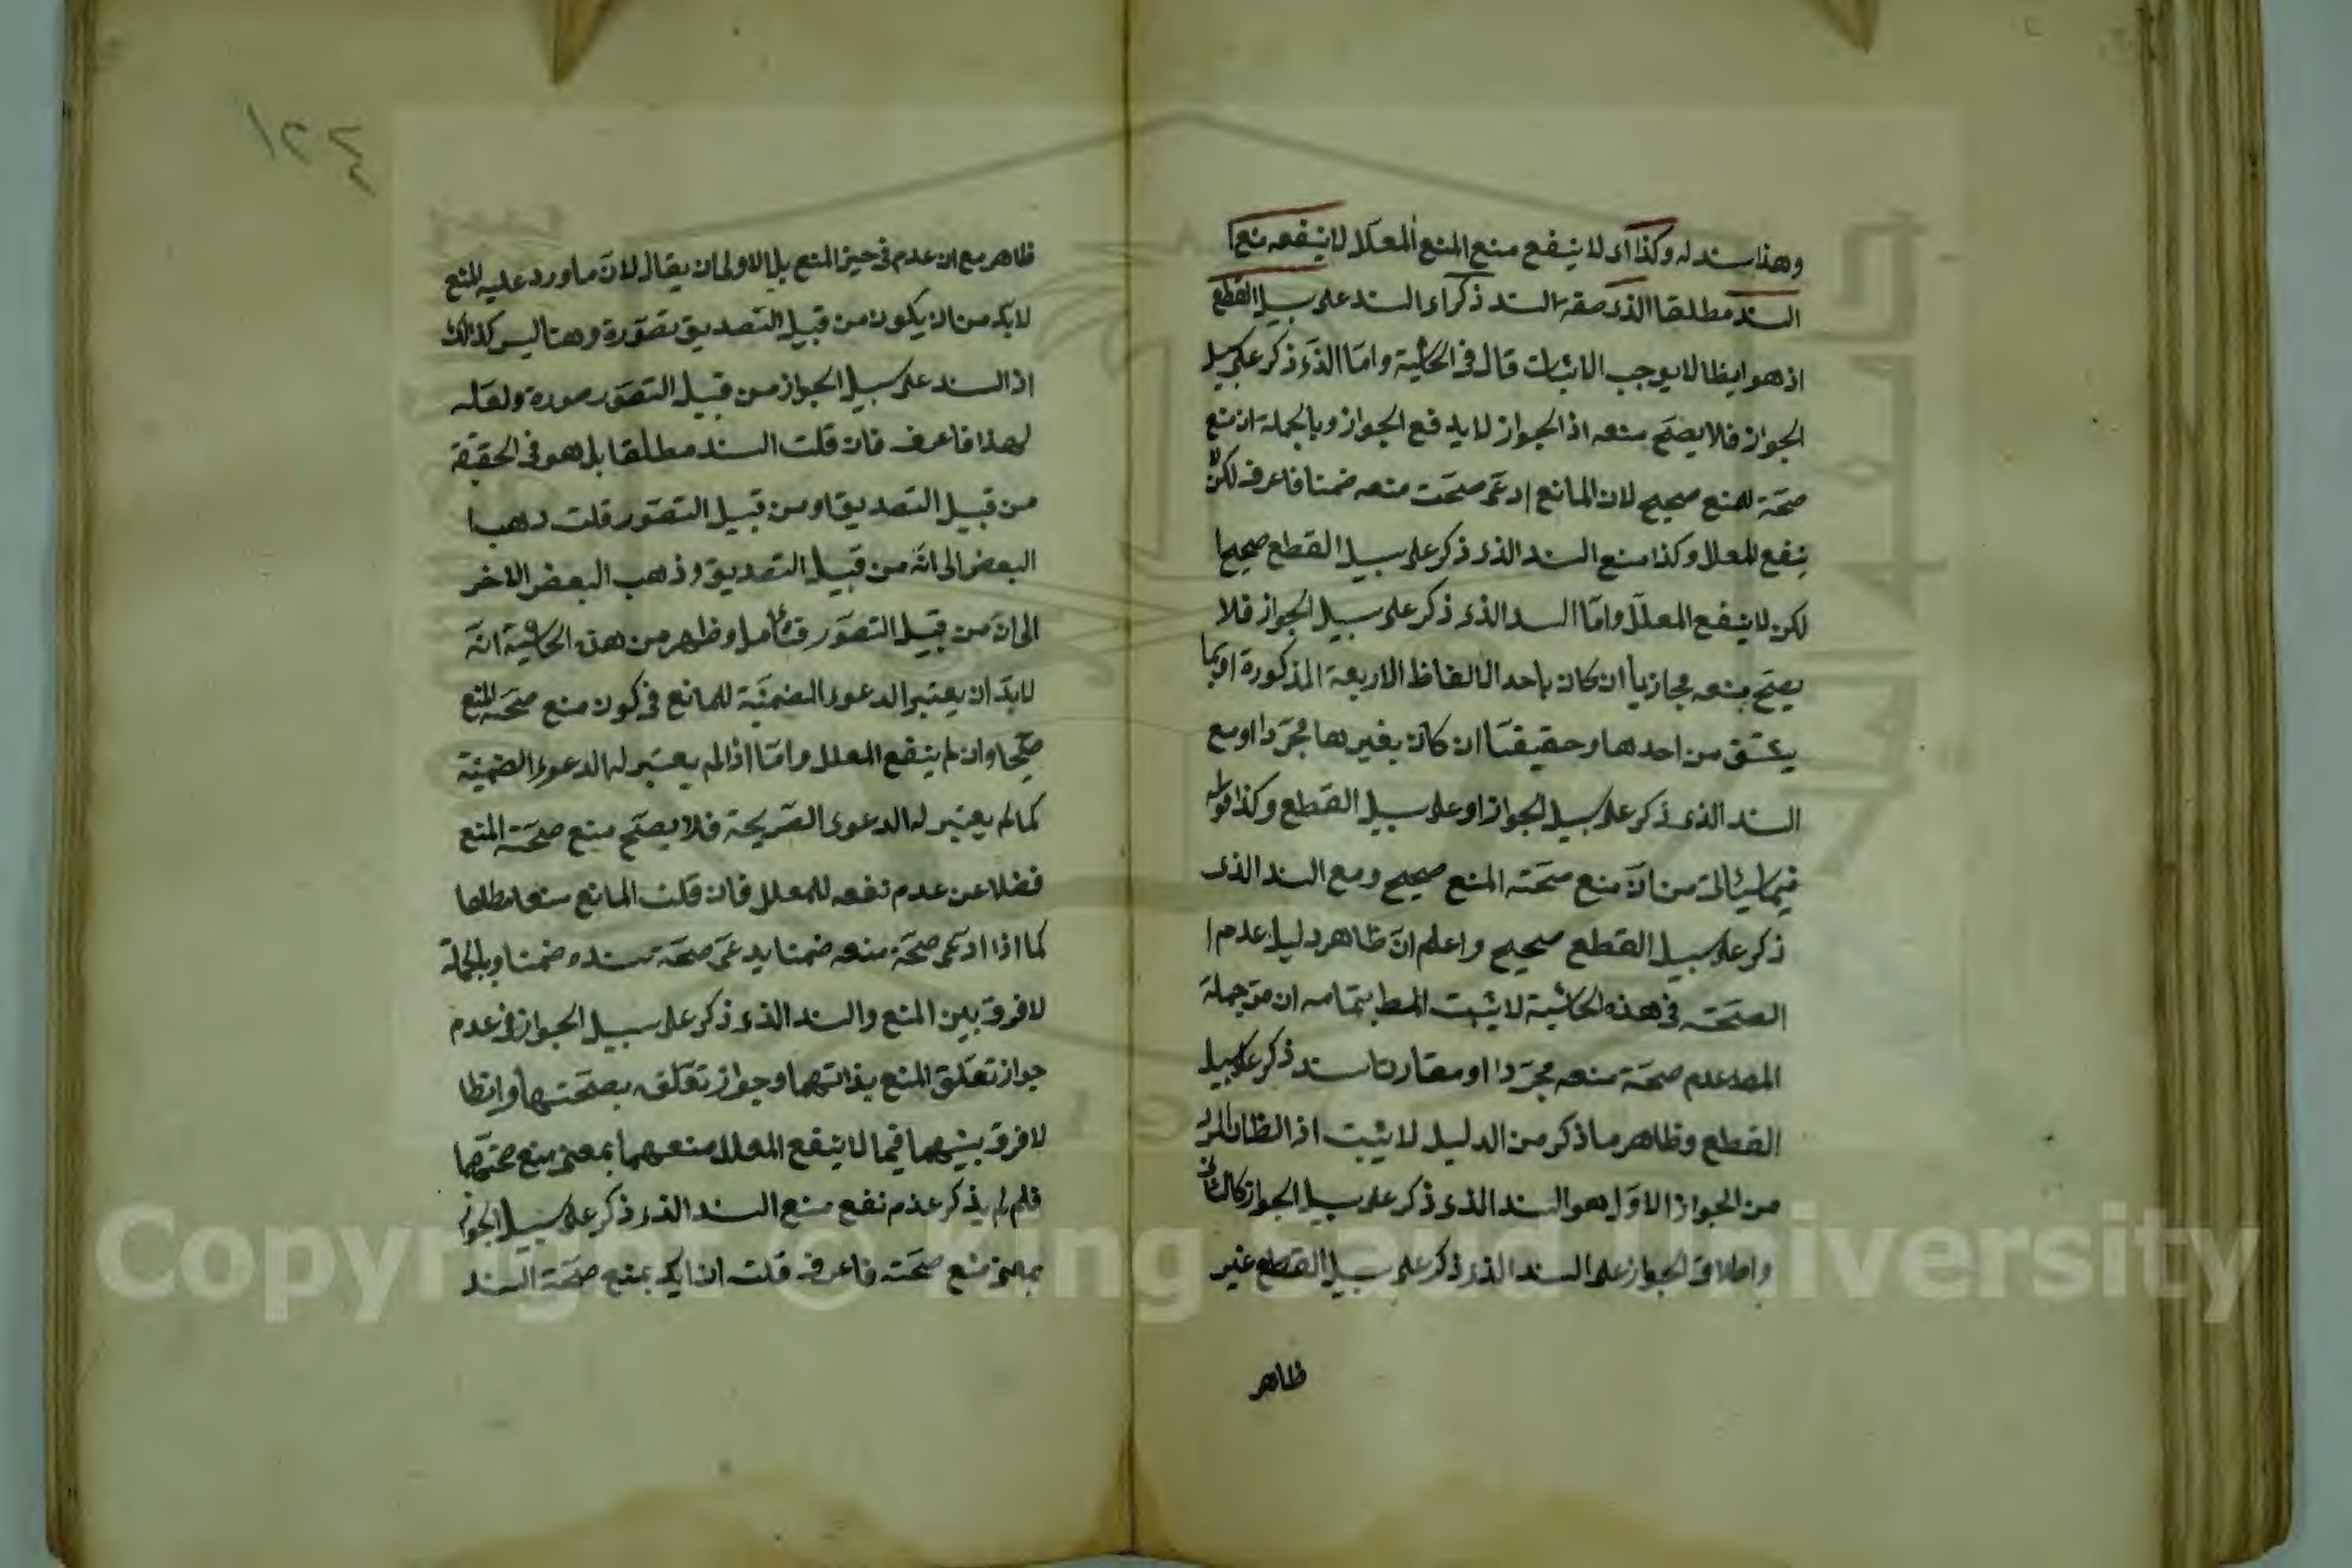 وهذا سند له وكذا اى لا ينفع منع المنع المعلل لا ينفعه منع
السند مطلقا الذى صفة السند ذكر اى السند على سبيل القطع
اذ هو ايظا لا يوجب الاثبات قال فى الحاشية واما الذى ذكر على سبيل
الجواز فلا يصح منعه اذ الجواز لا يدفع الجواز وبالجملة ان منع
صحة المنع صحيح لان المانع ادعى صحت منعه ضمنا فاعرف لكن لا
ينفع المعلل وكذا منع السند الذى ذكر على سبيل القطع صحيحا
لكن لا ينفع المعلل واما السند الذى ذكر على سبيل الجواز فلا
يصح منعه مجازيا ان كان باحد الالفاظ الاربعة المذكورة او بما
يشتق من احدها وحقيقتا ان كان بغيرها مجردا او مع
السند الذى ذكر على سبيل الجواز او على سبيل القطع وكذا قوله
فيما سيئاتى من ان منع صحته المنع صحيح ومع السند الذى
ذكر على سبيل القطع صحيح واعلم ان ظاهر دليل عدم
الصحته فى هذه الحاشية لا يثبت المط بتمامه ان من جملة
المط عدم صحة منعه مجردا او مقارنا سند ذكر على سبيل
القطع وظاهر ما ذكر من الدليل لا يثبت اذ الظان المراد
من الجواز الاول هو السند الذى ذكر على سبيل الجواز كالثانى
واطلاق الجواز على السند الذى ذكر على سبيل القطع غير
ظاهر
١٢٤
ظاهر مع ان عدم فى حيز المنع بل الاولى ان يقال لان ما ورد عليه المنع
لابد من ان يكون من قبيل التصديق تصورة وهنا ليس كذالك
اذ السند على سبيل الجواز من قبيل التصور صورة ولعله
لهذا فاعرف فان قلت السند مطلقا بل هو فى الحقيقة
من قبيل التصديق او من قبيل التصور قلت ذهب
البعض الى انه من قبيل التصديق وذهب البعض الاخر
الى انه من قبيل التصور فتئامل وظهر من هذه الحاشية انه
لابد ان يعتبر الدعوى الضمنية للمانع فى كون منع صحة المنع
صحيحا وان لم ينفع المعلل واما اذا لم يعتبر له الدعوى الضمنية
كما لم يعتبر له الدعوى الصريحة فلا يصح منع صحة المنع
فضلا عن عدم نفعه للمعلل فان قلت المانع منعا مطلقا
كما اذا ادعى صحة منعه ضمنا يدعى صحة سنده ضمنا وبالجملة
لا فرق بين المنع والسند الذى ذكر على سبيل الجواز فى عدم
جواز تعلق المنع بذاتهما وجواز تعلقه بصحتهما وايظا
لا فرق بينهما فيما لا ينفع المعلل منعهما بمعنى منع صحتهما
فلم لم يذكر عدم نفع منع السند الذى ذكر على سبيل الجواز
بمعنى منع صحته فاعرف قلت ان ايد بمنع صحة السند
Copyright © King Saud University